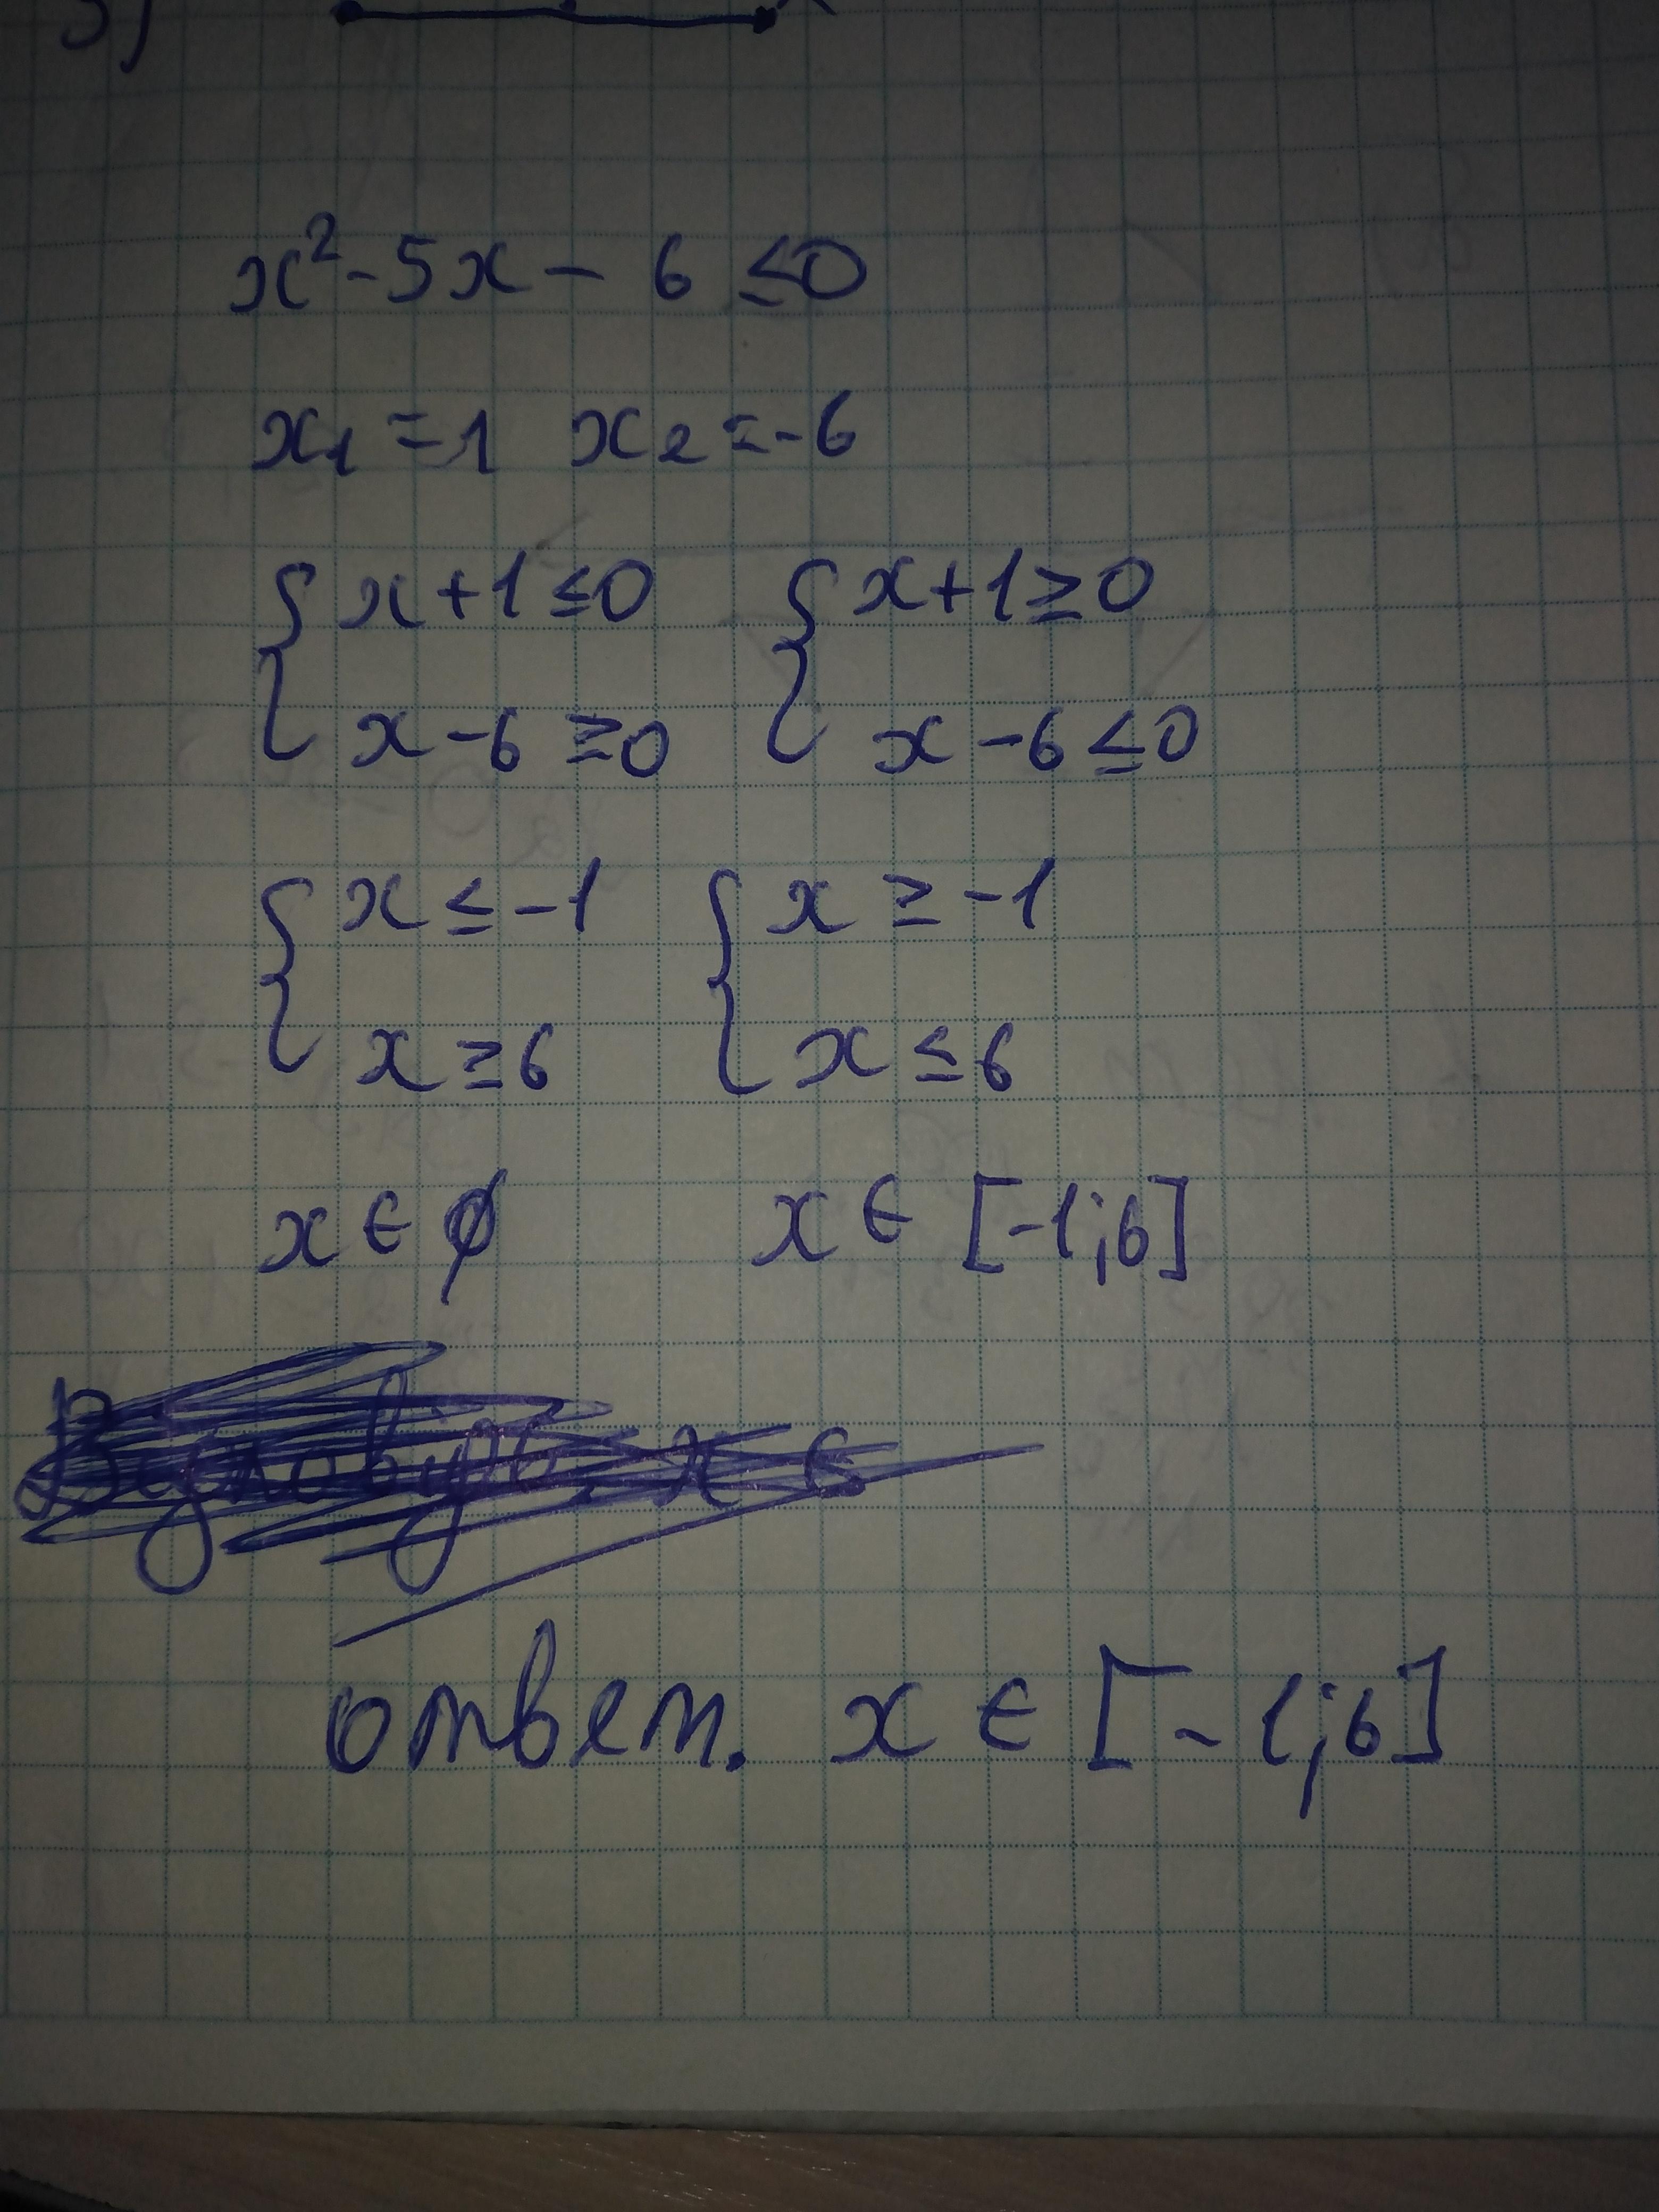 3)
x² - 5x - 6 ≤ 0
x₁ = 1 x₂ = -6
{ x + 1 ≤ 0 { x + 1 ≥ 0
x - 6 ≥ 0 x - 6 ≤ 0
{ x ≤ -1 { x ≥ -1
x ≥ 6 x ≤ 6
x ∈ ∅ x ∈ [-1; 6]
x ∈
ответ. x ∈ [-1; 6]